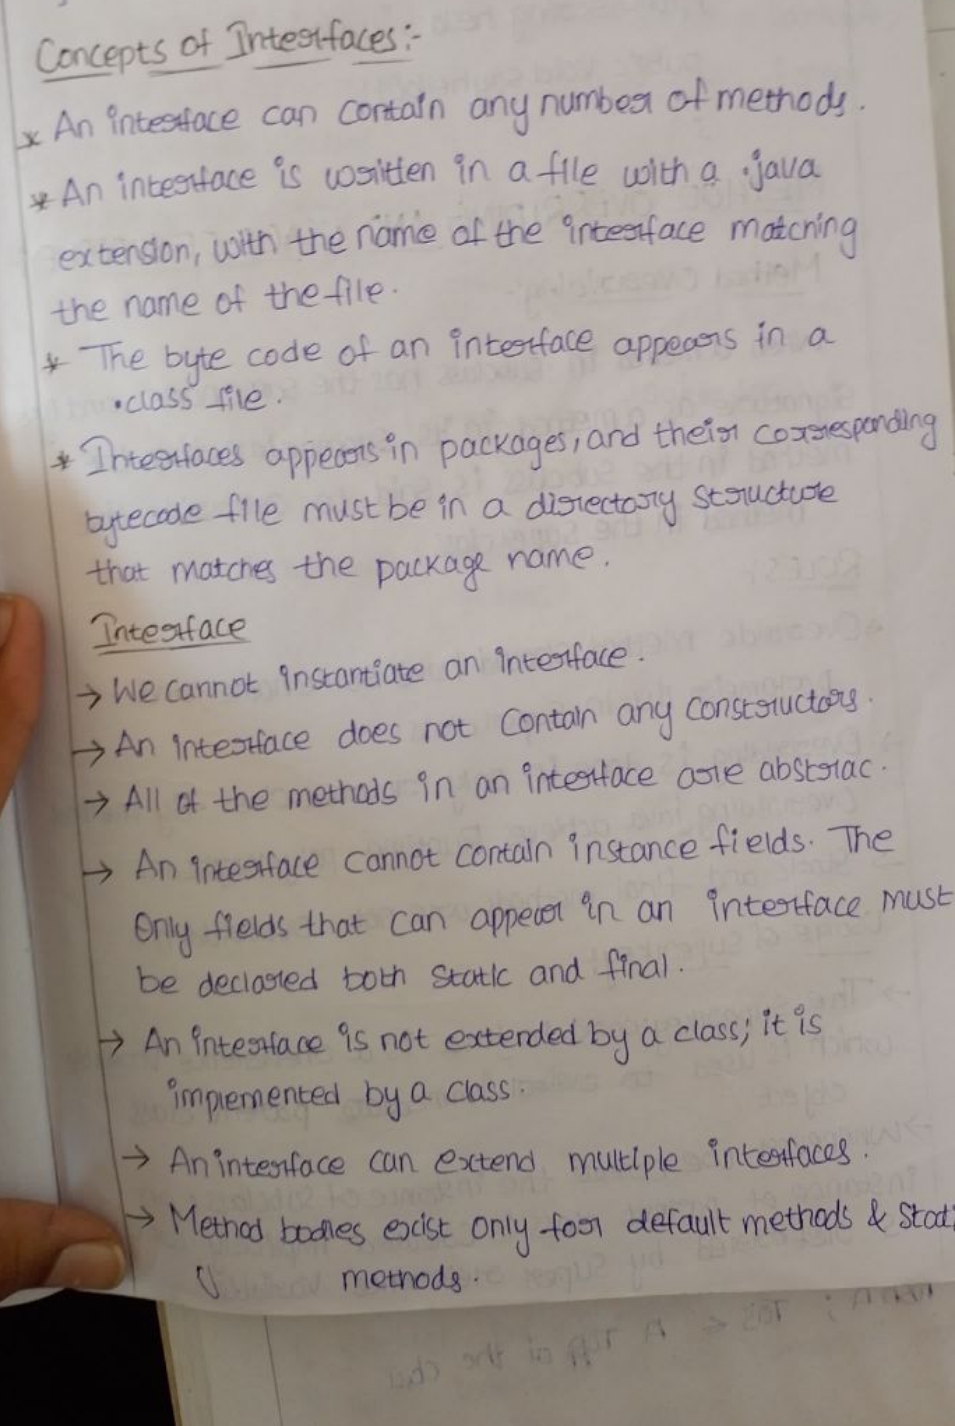 Concepts of Interfaces:-
* An interface can contain any number of methods.
* An interface is written in a file with a .java
extension, with the name of the interface matching
the name of the file.
* The byte code of an interface appears in a
.class file.
* Interfaces appears in packages, and their corresponding
bytecode file must be in a directory structure
that matches the package name.
Interface
→ We cannot instantiate an interface.
→ An interface does not contain any constructors.
→ All of the methods in an interface are abstrac.
→ An interface cannot contain instance fields. The
only fields that can appear in an interface must
be declared both static and final.
→ An interface is not extended by a class; it is
implemented by a class.
→ An interface can extend multiple interfaces.
→ Method bodies exist only for default methods & Stati
methods.